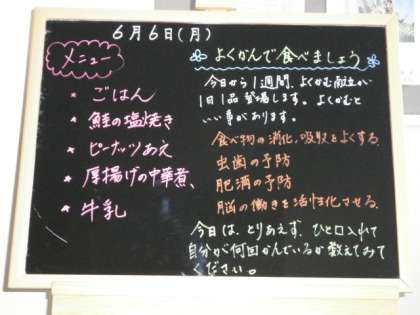 6月6日(月)
メニュー
* ごはん
* 鮭の塩焼き
* ピーナッツあえ
* 厚揚げの中華煮
* 牛乳
よくかんで食べましょう
今日から1週間、よくかむ献立が
1日1品登場します。よくかむと
いい事があります。
食べ物の消化、吸収をよくする
虫歯の予防
肥満の予防
脳の働きを活性化させる
今日は、とりあえず、ひと口入れて
自分が何回かんでいるか数えてみて
ください。